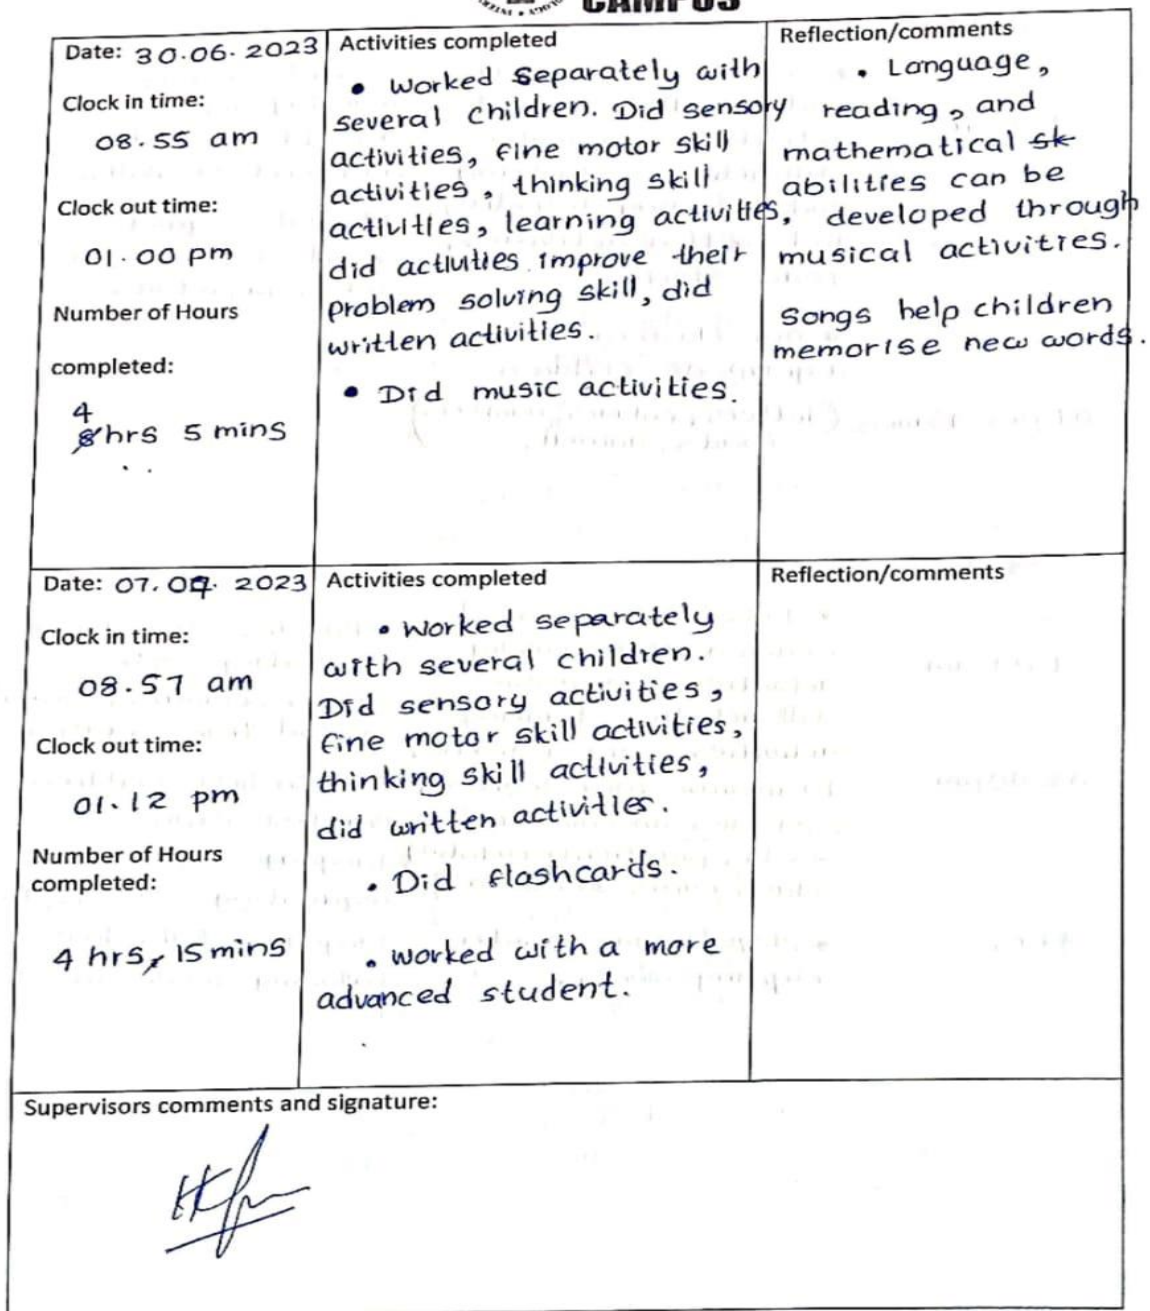 CAMPUS
Date: 30.06.2023
Clock in time:
08.55 am
Clock out time:
01.00 pm
Number of Hours
completed:
4
hrs 5 mins
Activities completed
• Worked Separately with
several children. Did sensory
activities, fine motor skill
activities, thinking skill
activities, learning activities,
did activities improve their
problem solving skill, did
written activities.
• Did music activities.
Reflection/comments
• Language,
reading, and
mathematical sk
abilities can be
developed through
musical activities.
Songs help children
memorise new words.
Date: 07.07.2023
Clock in time:
08.57 am
Clock out time:
01.12 pm
Number of Hours
completed:
4 hrs, 15 mins
Activities completed
• Worked separately
with several children.
Did sensory activities,
fine motor skill activities,
thinking skill activities,
did written activities.
• Did flashcards.
• Worked with a more
advanced student.
Reflection/comments
Supervisors comments and signature: